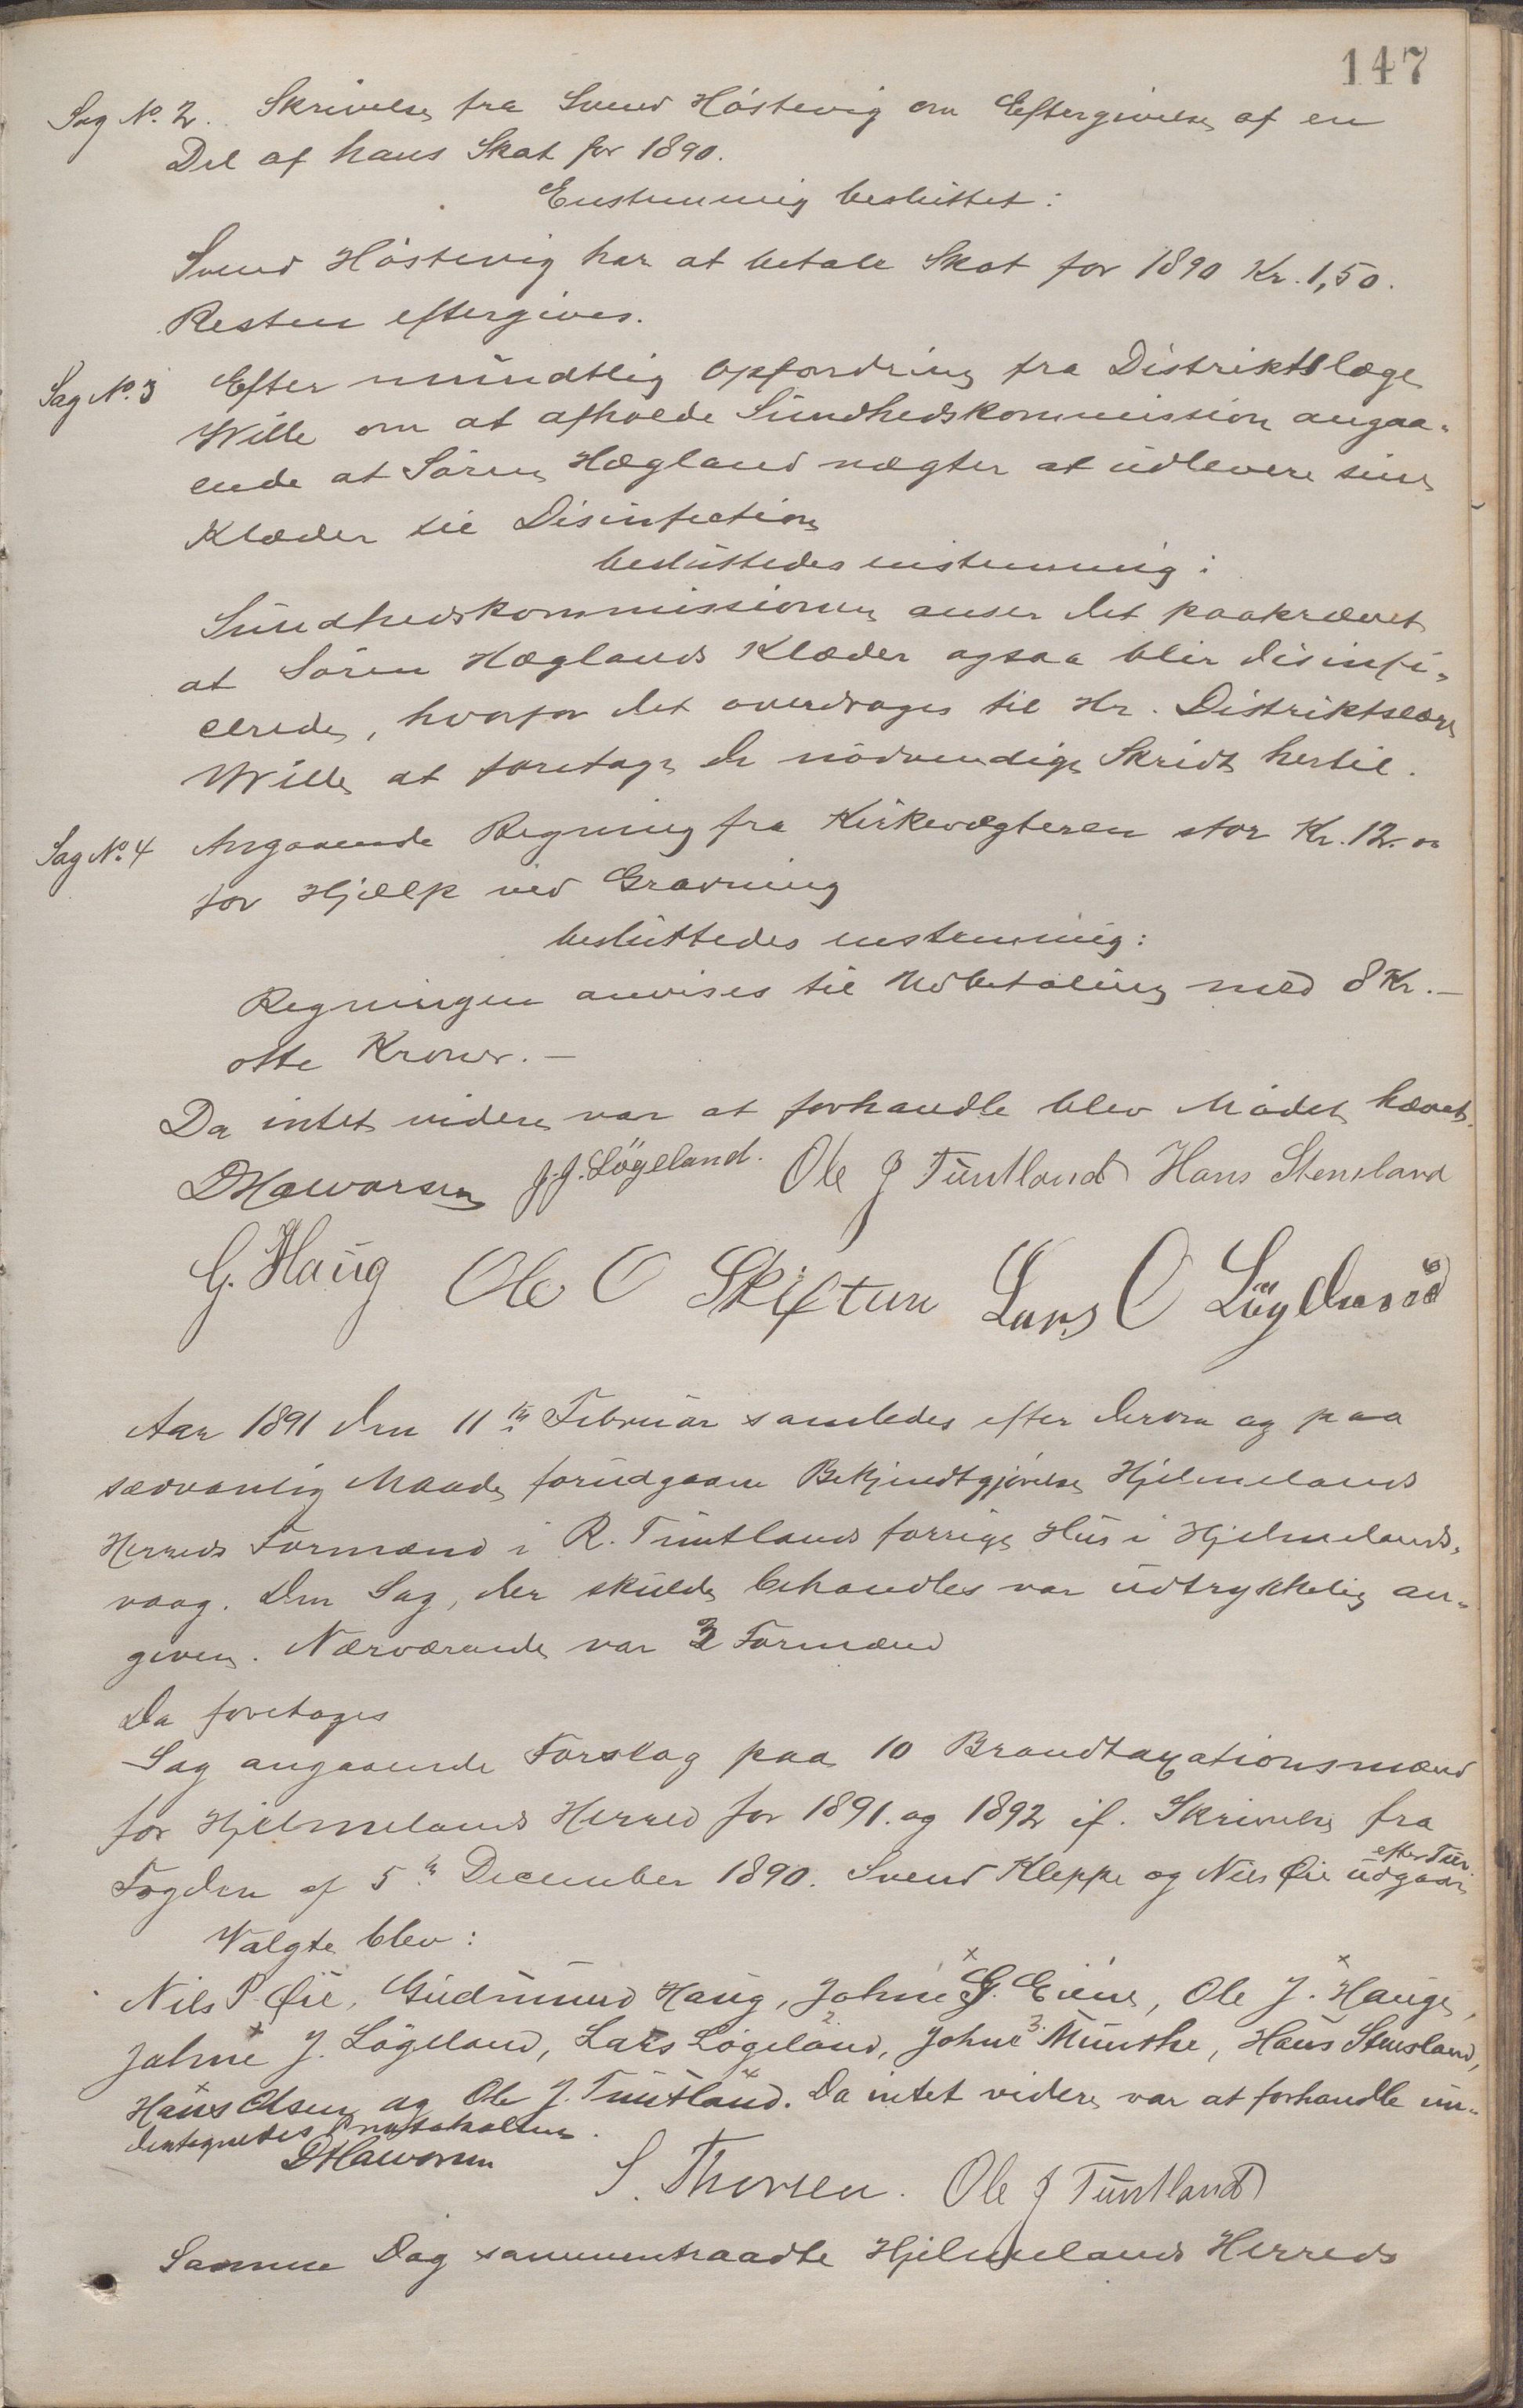 147
Sag No. 2. Skrivelse fra Svend Höstevig om Eftergivelse af en
Del af hans Skat for 1890.
Enstemmig besluttet:
Svend Höstevig har at betale Skat for 1890 Kr. 1,50.
Resten eftergives.
Sag No. 3 Efter mündtlig Opfordring fra Distriktslæge
Wille om at afholde Sündhedskommission angaa-
ende at Sören Hægland nægter at üdlevere sine
Klæder til Disinfection
beslüttedes enstemmig:
Sündhedskommissionen anser det paakrævet
at Sören Hæglands Klæder ogsaa blir disinfi-
cerede, hvorfor det overdrages til Hr. Distriktslæge
Wille at foretage de nödvendige Skridt hertil.
Sag No. 4 Angaaende Regning fra Kirkevægteren stor Kr. 12.00
for Hjælp ved Gravning
beslüttedes enstemmig:
Regningen anvises til Udbetaling med 8 Kr. –
otte Kroner. –
Da intet videre var at forhandle blev Mödet hævet.
DHalvorsen J. J. Lögeland. Ole J Tüntland Hans Stensland
G. Haüg Ole O Skiftun Lars O Lögeland
Aar 1891 den 11te Februar samledes efter derom og paa
sædvanlig Maade forudgaaen Bekjendtgjörelse Hjelmelands
Herreds Formænd i R. Tüntlands forrige Hüs i Hjelmelands-
vaag. Den Sag, der skulde behandles var üdtrykkelig an-
given. Nærværende var 3 Formænd
Da foretoges
Sag angaaende Forslag paa 10 Brandtaxationsmænd
for Hjelmelands Herred for 1891. og 1892 if. Skrivelse fra
Fogden af 5te December 1890. Svend Kleppe og Nils Øie üdgaar
efter Tür.
Valgte blev:
Nils P. Øie, Güdmünd Haüg, Johne G. Eiene, Ole J. Haüge,
Johne J. Lögeland, Lars Lögeland, Johne Münthe, Hans Stensland,
Hans Olsen og Ole J. Tüntland. Da intet videre var at forhandle ün-
dertegnedes Protokollen.
DHalvorsen S. Thorsen. Ole J Tüntland
Samme Dag sammentraadte Hjelmelands Herreds